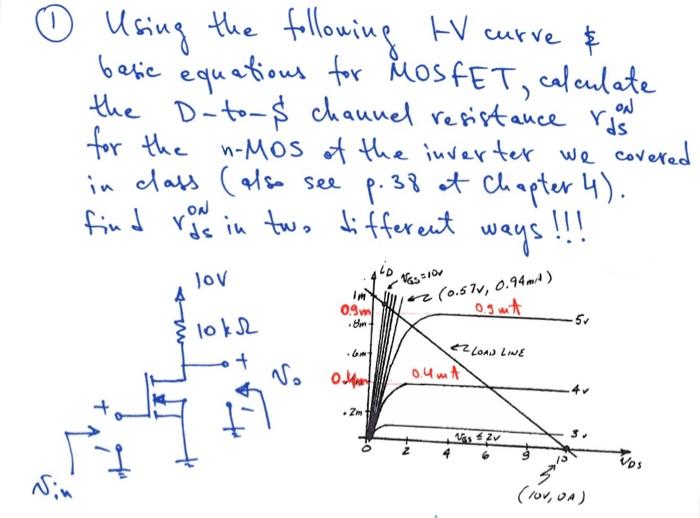 ① Using the following I-V curve &
basic equations for MOSFET, calculate
the D-to-S channel resistance rds ON
for the n-MOS of the inverter we covered
in class (also see p.38 of Chapter 4).
find rds ON in two different ways!!!
10V
10kΩ
+
Vo
-
+
-
Vin
iD
VGS=10V
(0.57V, 0.94mA)
1m
0.9m
0.9mA
5V
.8m
LOAD LINE
.6m
0.4m
0.4mA
4V
.2m
VGS ≤ 2V
3V
0 2 4 6 8 10
VDS
(10V, 0A)